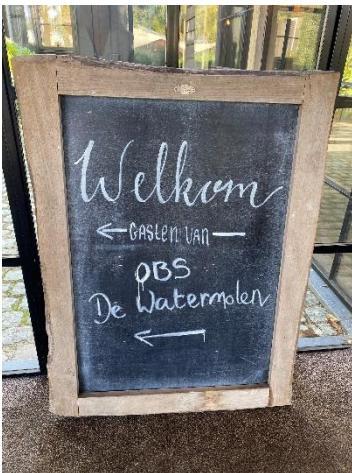 Welkom
← GASten VAN —
OBS
De Watermolen
←